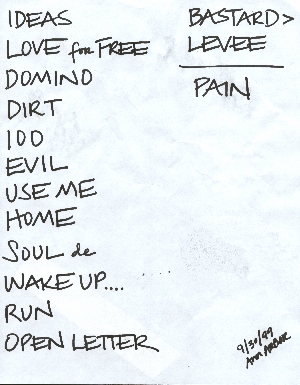 IDEAS
LOVE for FREE
DOMINO
DIRT
100
EVIL
USE ME
HOME
SOUL de
WAKE UP....
RUN
OPEN LETTER
BASTARD>
LEVEE
PAIN
9/30/99
Ann ARBOR